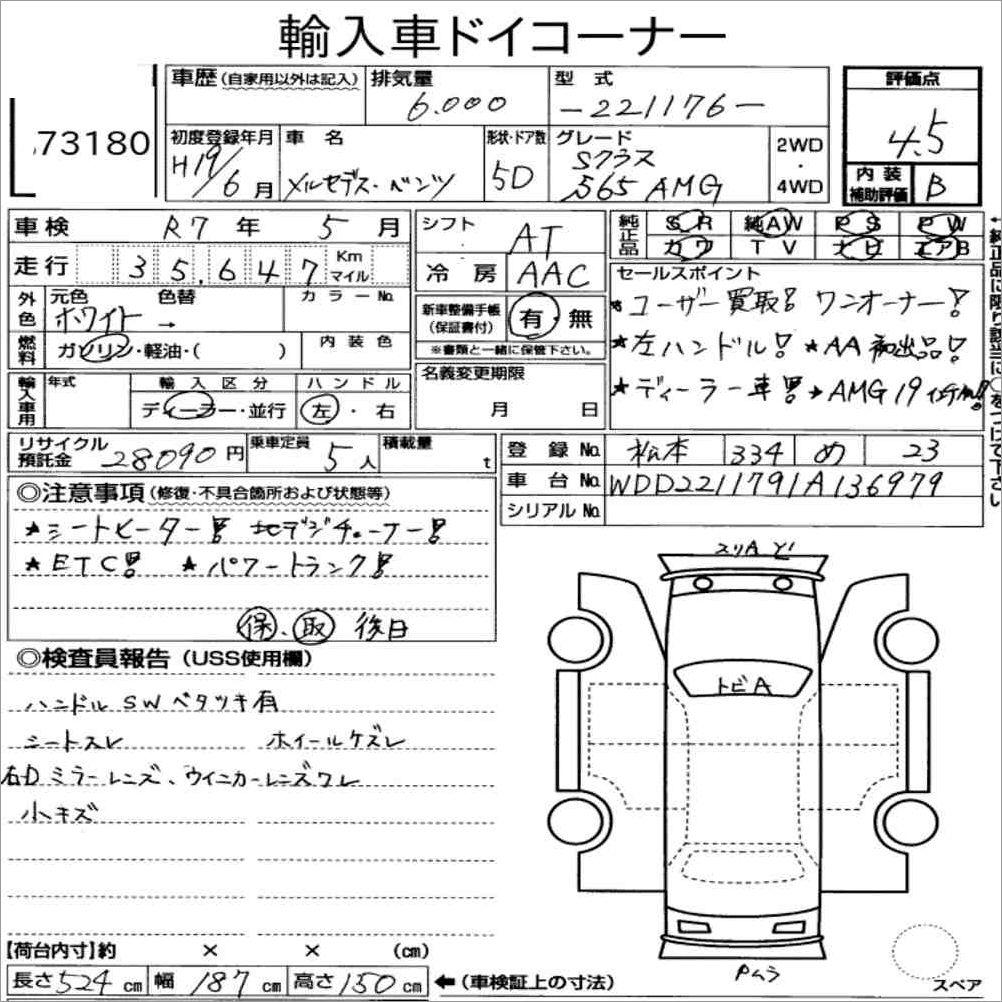 輸入車ドイコーナー
73180
車歴(自家用以外は記入)
排気量
6.000
型式
-221176-
評価点
4.5
初度登録年月
H19/6月
車名
メルセデス・ベンツ
形状・ドア数
5D
グレード
Sクラス
S65 AMG
2WD
・
4WD
内装
補助評価
B
車検 R7年 5月
走行 35,647 Km マイル
シフト AT
冷房 AAC
純正品 SR 純AW PS PW
カワ TV ナビ エアB
セールスポイント
★ユーザー買取! ワンオーナー!
★左ハンドル! ★AA初出品!
★ディーラー車! ★AMG19インチAW!!
外色
元色 色替 カラーNo.
ホワイト →
燃料
ガソリン・軽油・( )
内装色
新車整備手帳
(保証書付)
有・無
※書類と一緒に保管下さい。
名義変更期限
月 日
輸入車用
年式
輸入区分
ディーラー・並行
ハンドル
左・右
リサイクル
預託金 28090円
乗車定員 5人
積載量 t
登録No. 松本 334 め 23
車台No. WDD2211791A136979
シリアルNo.
◎注意事項(修復・不具合箇所および状態等)
★シートヒーター! 地デジチューナー!
★ETC! ★パワートランク!
保、取 後日
◎検査員報告(USS使用欄)
ハンドルSWベタツキ有
シートスレ ホイールケズレ
右Dミラーレンズ、ウインカーレンズワレ
小キズ
【荷台内寸】約 × × (cm)
長さ524cm 幅187cm 高さ150cm ←(車検証上の寸法)
スリA ビ
トビA
Pムラ
スペア